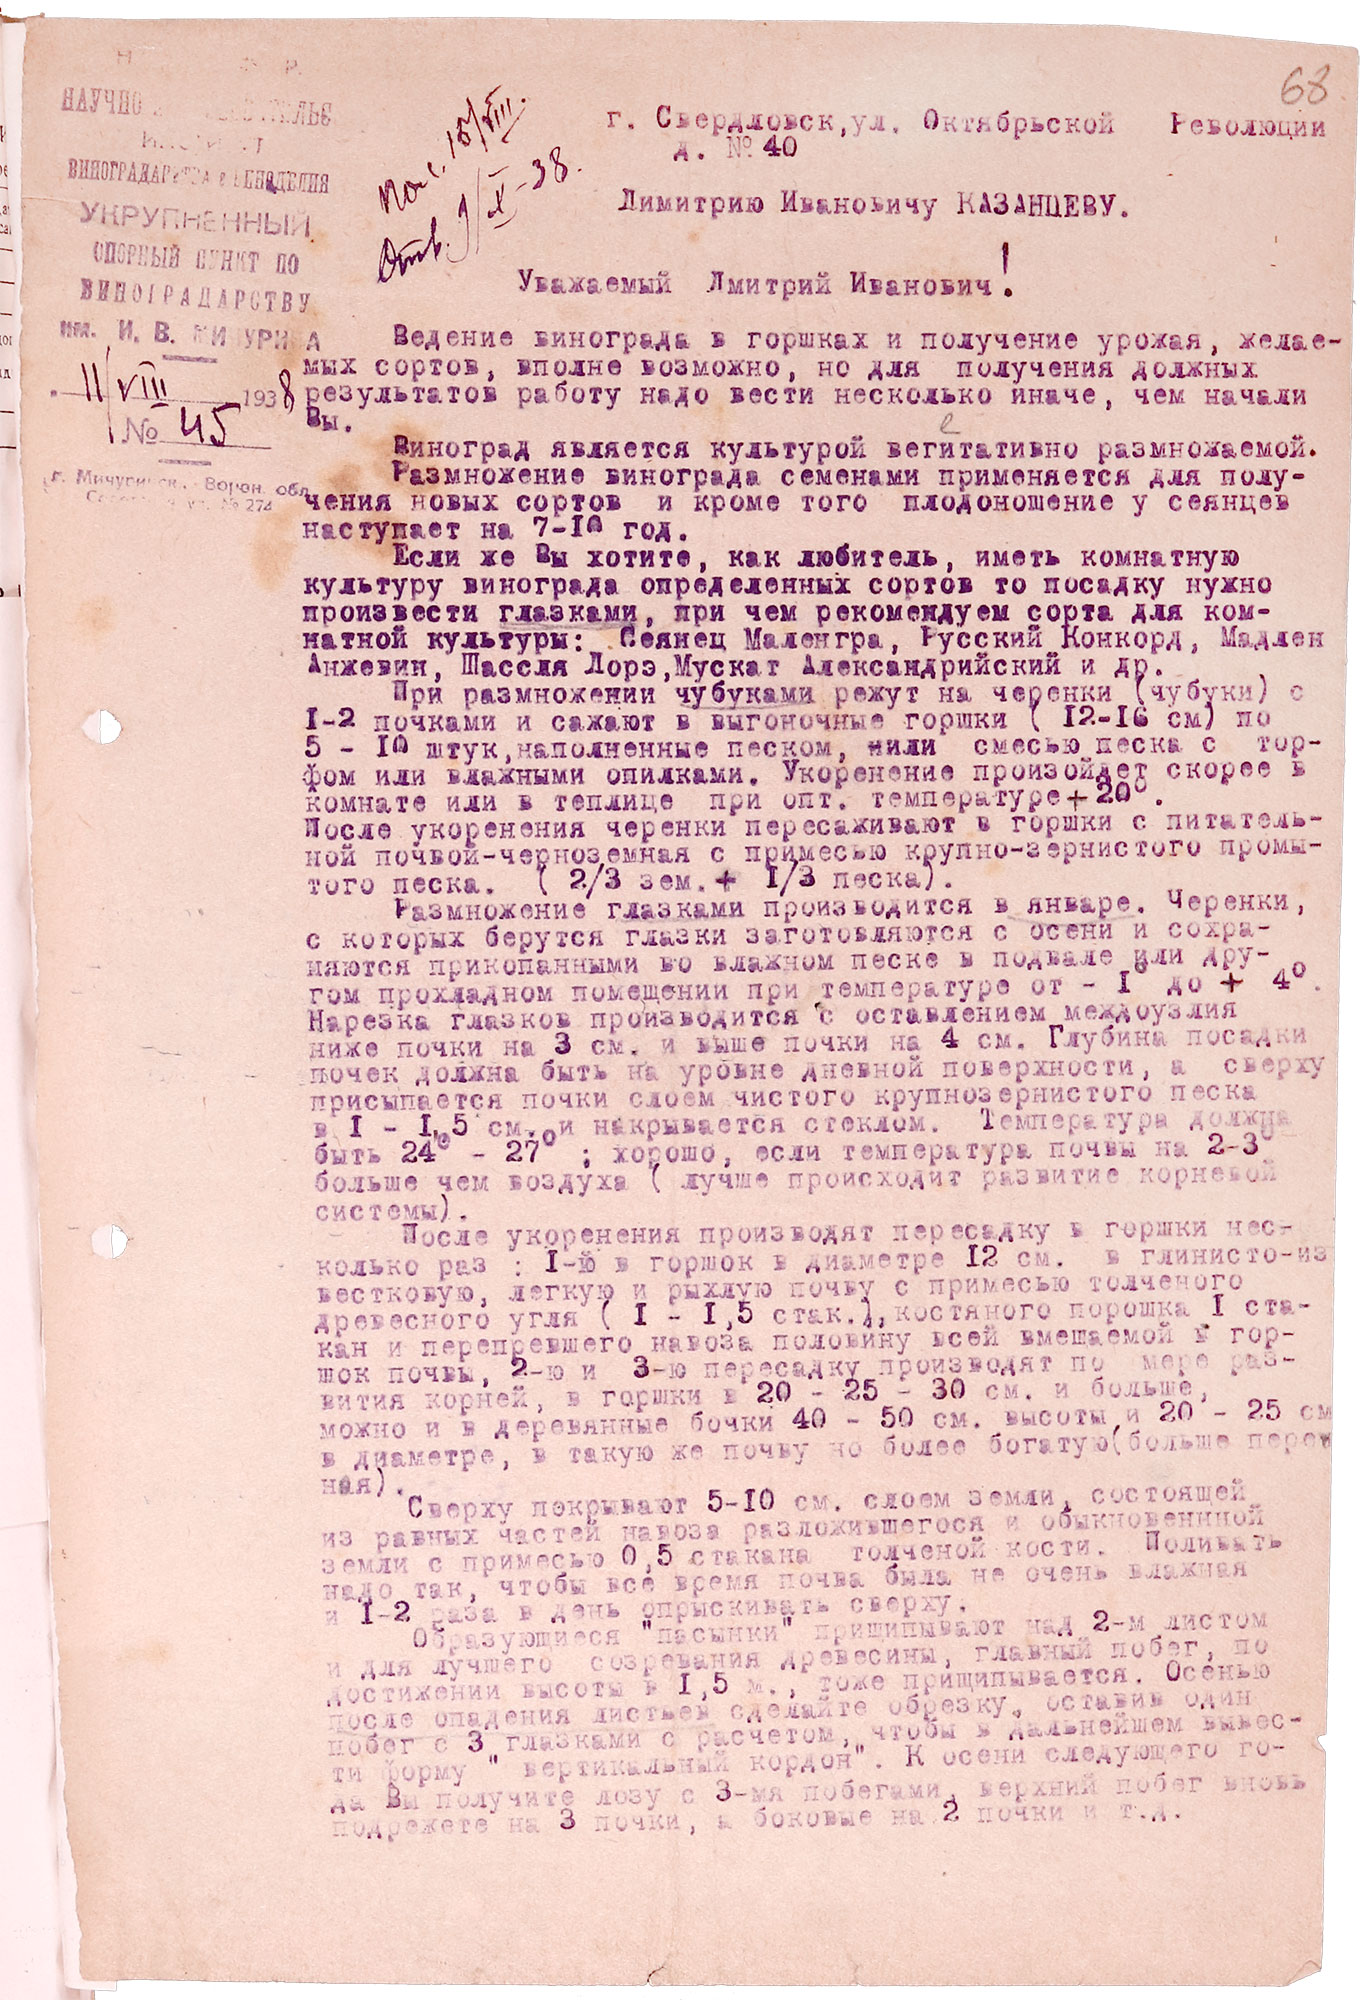 68
НАУЧНО
ИНСТИТУТ
ВИНОГРАДАРСТВА и ВИНОДЕЛИЯ
УКРУПНЕННЫЙ
ОПОРНЫЙ ПУНКТ ПО
ВИНОГРАДАРСТВУ
им. И. В. МИЧУРИНА
11/VIII 1938
№ 45
г. Мичуринск, Ворон. обл.
ул. № 274
Пол. 15/VIII.
Отв. 9/X-38.
г. Свердловск,ул. Октябрьской Революции
д. № 40
Димитрию Ивановичу КАЗАНЦЕВУ.
Уважаемый Дмитрий Иванович!
Ведение винограда в горшках и получение урожая, желае-
мых сортов, вполне возможно, но для получения должных
результатов работу надо вести несколько иначе, чем начали
Вы.
Виноград является культурой вегитативно размножаемой.
Размножение винограда семенами применяется для полу-
чения новых сортов и кроме того плодоношение у сеянцев
наступает на 7-10 год.
Если же Вы хотите, как любитель, иметь комнатную
культуру винограда определенных сортов то посадку нужно
произвести глазками, при чем рекомендуем сорта для ком-
натной культуры: Сеянец Маленгра, Русский Конкорд, Мадлен
Анжевин, Шассля Лорэ,Мускат Александрийский и др.
При размножении чубуками режут на черенки (чубуки) с
1-2 почками и сажают в выгоночные горшки ( 12-16 см) по
5 - 10 штук,наполненные песком, или смесью песка с тор-
фом или влажными опилками. Укоренение произойдет скорее в
комнате или в теплице при опт. температуре+20°.
После укоренения черенки пересаживают в горшки с питатель-
ной почвой-черноземная с примесью крупно-зернистого промы-
того песка. ( 2/3 зем.+ 1/3 песка).
Размножение глазками производится в январе. Черенки,
с которых берутся глазки заготовляются с осени и сохра-
няются прикопанными во влажном песке в подвале или дру-
гом прохладном помещении при температуре от - 1° до + 4°.
Нарезка глазков производится с оставлением междоузлия
ниже почки на 3 см. и выше почки на 4 см. Глубина посадки
почек должна быть на уровне дневной поверхности, а сверху
присыпается почки слоем чистого крупнозернистого песка
в 1 - 1,5 см. и накрывается стеклом. Температура должна
быть 24° - 27° ; хорошо, если температура почвы на 2-3°
больше чем воздуха ( лучше происходит развитие корневой
системы).
После укоренения производят пересадку в горшки нес-
колько раз : 1-ю в горшок в диаметре 12 см. в глинисто-из
вестковую, легкую и рыхлую почву с примесью толченого
древесного угля ( 1 - 1,5 стак.),костяного порошка 1 ста-
кан и перепревшего навоза половину всей вмещаемой в гор-
шок почвы, 2-ю и 3-ю пересадку производят по мере раз-
вития корней, в горшки в 20 - 25 - 30 см. и больше,
можно и в деревянные бочки 40 - 50 см. высоты и 20 - 25 см
в диаметре, в такую же почву но более богатую(больше перег
ная).
Сверху покрывают 5-10 см. слоем земли, состоящей
из равных частей навоза разложившегося и обыкновеннной
земли с примесью 0,5 стакана толченой кости. Поливать
надо так, чтобы все время почва была не очень влажная
и 1-2 раза в день опрыскивать сверху.
Образующиеся "пасынки" прищипывают над 2-м листом
и для лучшего созревания древесины, главный побег, по
достижении высоты в 1,5 м., тоже прищипывается. Осенью
после опадения листьев сделайте обрезку, оставив один
побег с 3 глазками с расчетом, чтобы в дальнейшем вывес-
ти форму " вертикальный кордон". К осени следующего го-
да Вы получите лозу с 3-мя побегами, верхний побег вновь
подрежете на 3 почки, а боковые на 2 почки и т.д.